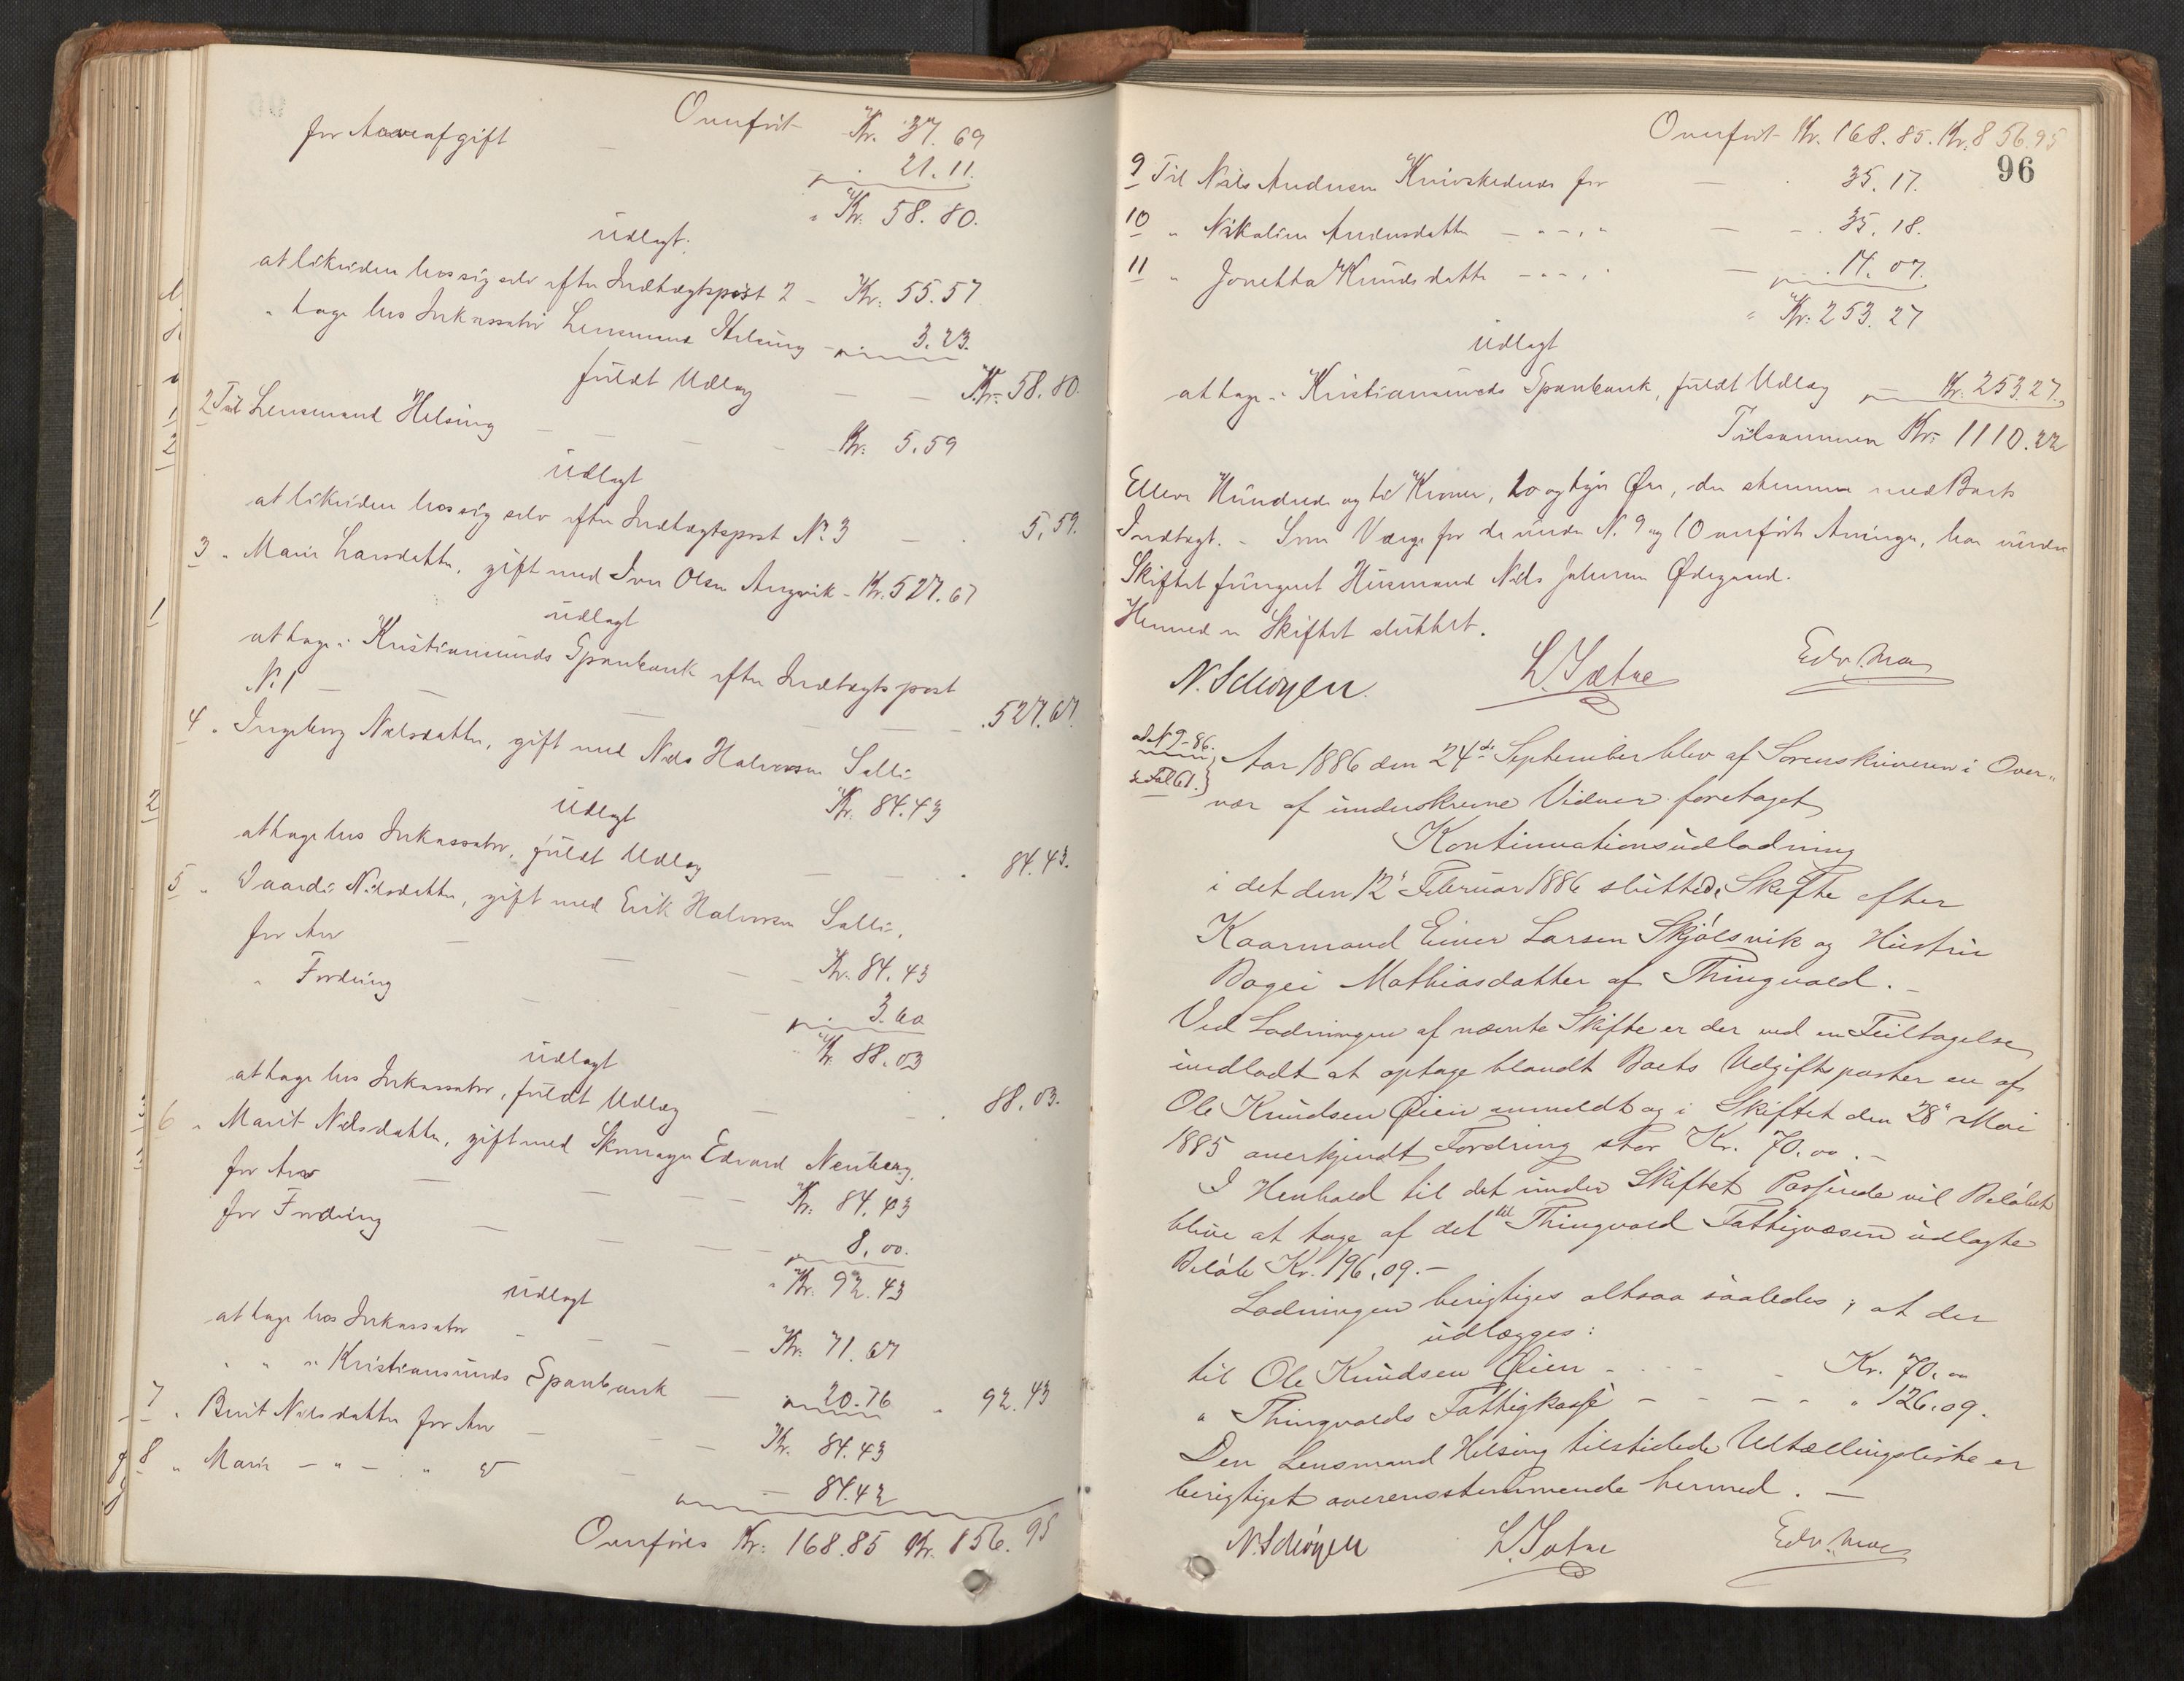 Overført Kr. 37.69
for Arveafgift — " 21.11.
" Kr. 58.80.
udlagt:
at likvidere hos sig selv efter Indtægtspost 2 – Kr. 55.57
" tage hos Inkassator Lensmand Helsing – " 3.23.
fuldt Udlæg — — Kr. 58.80.
2 Til Lensmand Helsing — — — Kr. 5.59
udlagt
at likvidere hos sig selv efter Indtægtspost No 3 — " 5.59.
3 " Marie Larsdatter, gift med Iver Olsen Angvik – Kr. 527.67
udlagt
at tage i Kristiansunds Sparebank efter Indtægtspost
N. 1 — — — — — " 527.67.
4 " Ingeborg Nilsdatter, gift med Nils Halvorsen Salli
Kr. 84.43
udlagt
at tage hos Inkassator, fuldt Udlæg — — — " 84.43.
5 " Nilsdatter, gift med Erik Halvorsen Salli,
for Arv — — — Kr. 84.43
" Fordring — — " 3.60
" Kr. 88.03
udlagt
at tage hos Inkassator, fuldt Udlæg — — " 88.03.
6 " Marit Nilsdatter, gift med Skomager Edvard Neuberg,
for Arv — — — Kr. 84.43
for Fordring — — — " 8.00.
" Kr. 92.43
udlagt
at tage hos Inkassator — — — Kr. 71.67
" " " Kristiansunds Sparebank — " 20.76 " 92.43
7 " Berit Nilsdatter for Arv — — Kr. 84.43
8 " Marie — " — " " — — 84.42
Overføres Kr. 168.85 Kr. 856.95
Overført Kr. 168.85. Kr. 856.95
96
9 Til Nils Andersen for — " 35.17.
10 " Nikoline Andersdatter — " — " — – 35.18.
11 " Jonetta Knudsdatter — " — " — " 14.07.
" Kr. 253.27
udlagt
at tage i Kristiansunds Sparebank, fuldt Udlæg — Kr. 253.27.
Tilsammen Kr. 1110.22
Elleve Hundrede og ti Kroner, to og tyve Øre, der stemmer med Boets
Indtægt. – Som Værge for de under N. 9 og 10 anførte Arvinger, har under
Skiftet fungeret Husmand Nils Johnsen Ødegaard.
Hermed er Skiftet sluttet.
N. Schøyen. L. Sætre Edv. Moe
ad N 9-86.
se Fol 61. } Aar 1886 den 24de September blev af Sorenskriveren i Over-
vær af underskrevne Vidner foretaget
Kontinuationsudlodning
i det den 12' Februar 1886 sluttede Skifte efter
Kaarmand Einer Larsen Skjølsvik og Hustru
Mathiasdatter af Thingvold. –
Ved Lodningen af nævnte Skifte er der ved en Feiltagelse
undladt at optage blandt Boets Udgiftsposter en af
Ole Knudsen Øien anmeldt og i Skiftet den 28' Mai
1885 anerkjendt Fordring stor Kr. 70.00. –
I Henhold til det under Skiftet Passerede vil Beløbet
blive at tage af det til Thingvold Fattigvæsen udlagte
Beløb Kr. 196.09. –
Lodningen berigtiges altsaa saaledes, at der
udlægges:
til Ole Knudsen Øien – – – – Kr. 70.00
" Thingvolds Fattigkasse – – – – " 126.09.
Den Lensmand Helsing tilstillede Udtællingsliste er
berigtiget overensstemmende hermed. –
N. Schøyen L. Sætre Edv. Moe